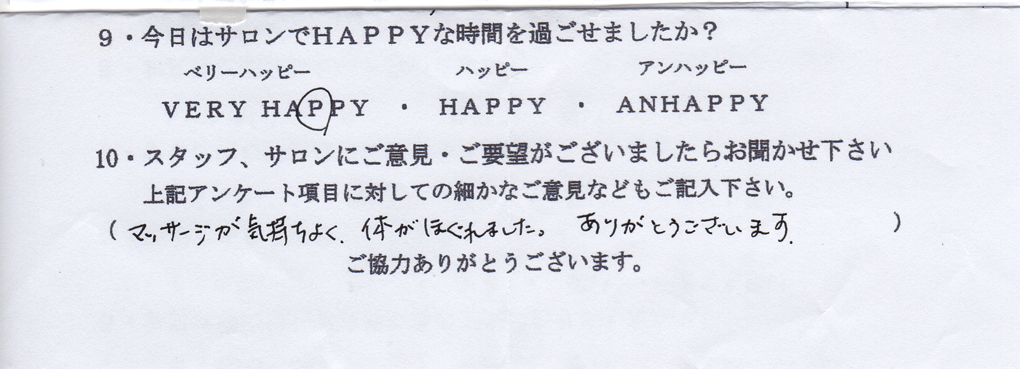 9・今日はサロンでHAPPYな時間を過ごせましたか？
ベリーハッピー ハッピー アンハッピー
VERY HAPPY ・ HAPPY ・ ANHAPPY
10・スタッフ、サロンにご意見・ご要望がございましたらお聞かせ下さい
上記アンケート項目に対しての細かなご意見などもご記入下さい。
( マッサージが気持ちよく、体がほぐれました。 ありがとうございます. )
ご協力ありがとうございます。